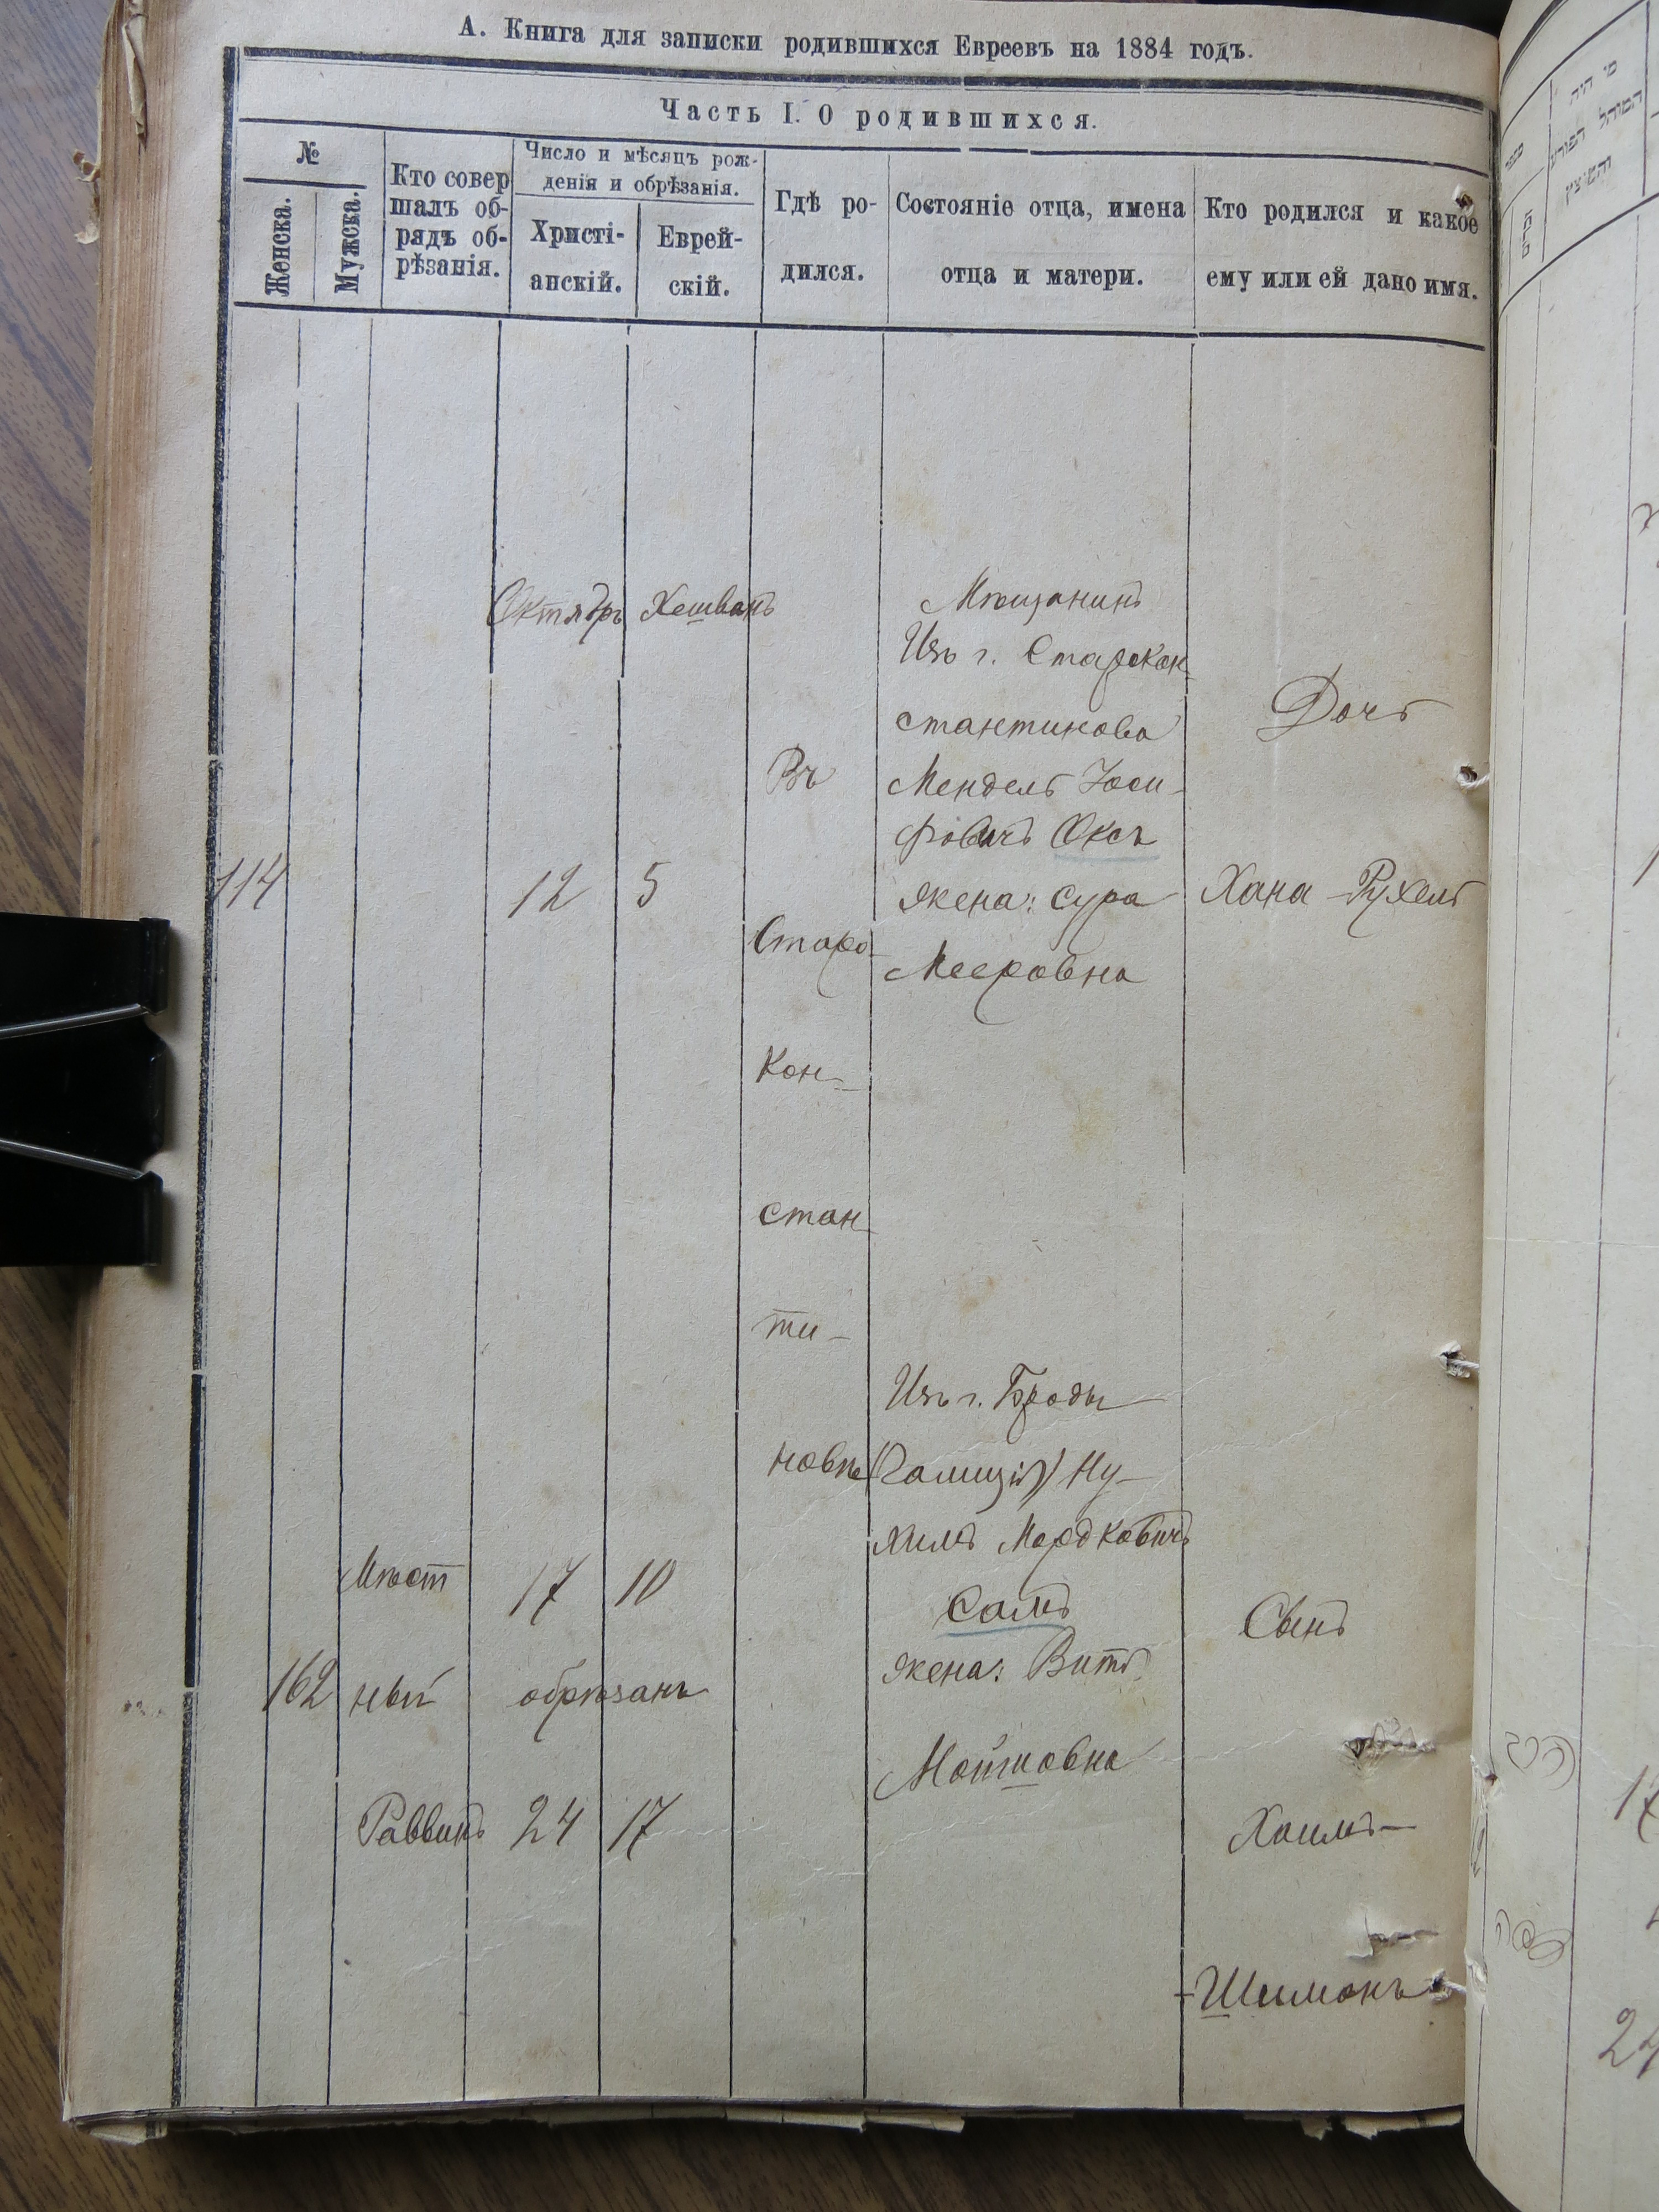 А. Книга для записки родившихся Евреевъ на 1884 годъ.
Часть I. О родившихся.
№
Женска.
Мужска.
Кто совер
шалъ об-
рядъ об-
рѣзанія.
Число и мѣсяцъ рож-
денія и обрѣзанія.
Христі-
анскій.
Еврей-
скій.
Гдѣ ро-
дился.
Состояніе отца, имена
отца и матери.
Кто родился и какое
ему или ей дано имя.
Октябрь Хешванъ
114
12 5
Въ
Старо-
Кон-
стан-
ти-
новѣ
Мѣщанинъ
Изъ г. Старокон-
стантинова
Мендель Іоси-
фовичъ Оксъ
жена: Сура
Мееровна
Дочь
Хана-Рухель
162
Мѣст
ный
Раввинъ
17 10
обрѣзанъ
24 17
Изъ г. Броды
(Галиція) Ну-
химъ Мордковичъ
Самъ
жена: Витъ
Мойшовна
Сынъ
Хаимъ-
-Шимонъ